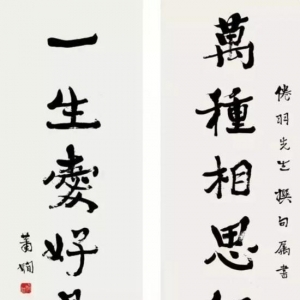 倦羽先生 撰句属書
萬種相思
一生愛好
蕭嫻